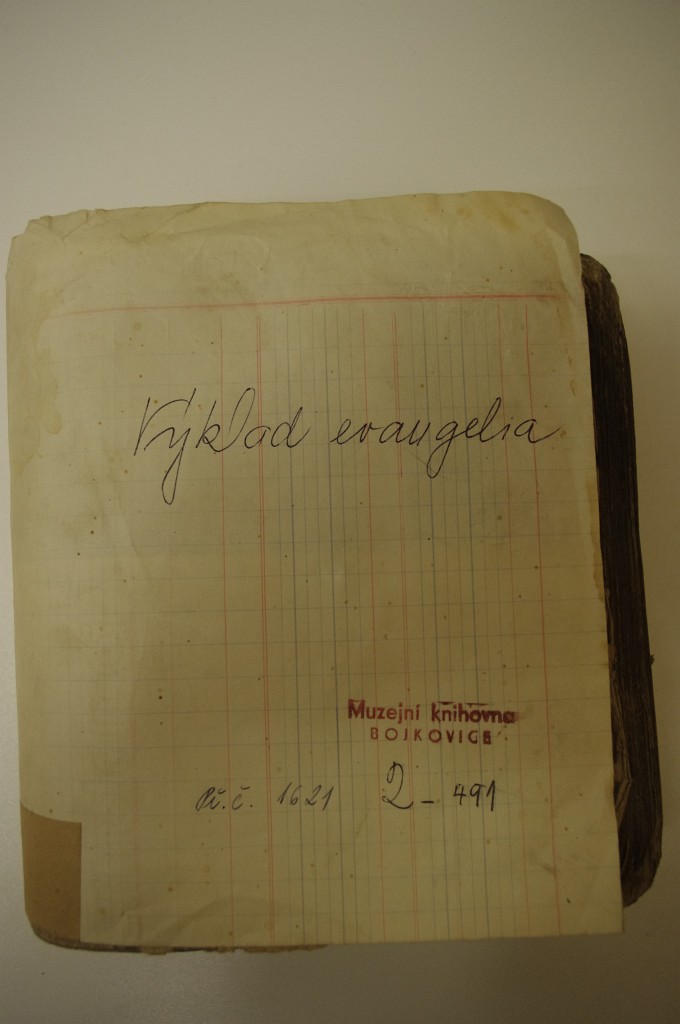 Výklad evangelia
Muzejní knihovna
BOJKOVICE
Př.č. 1621 2 - 491